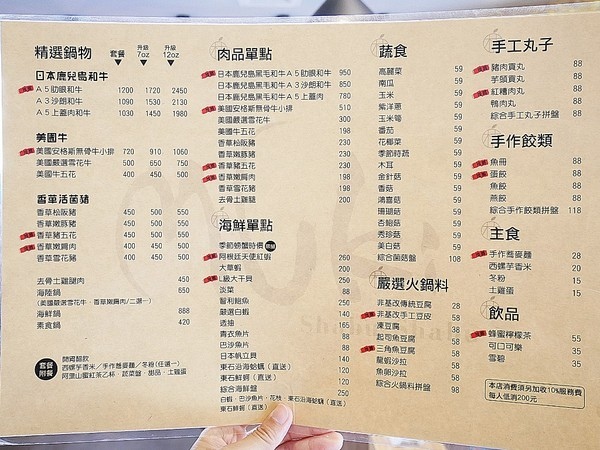 精選鍋物 套餐 升級7oz 升級12oz
日本鹿兒島和牛
A5肋眼和牛 1200 1720 2450
A3沙朗和牛 1090 1530 2130
A5上蓋肉和牛 1030 1450 1980
美國牛
美國安格斯無骨牛小排 720 910 1060
美國嚴選雪花牛 500 650 750
美國牛五花 400 450 500
香草活菌豬
香草松阪豬 450 500 550
香草嫩豚豬 450 500 550
香草豬五花 400 450 500
香草嫩肩肉 400 450 500
香草雪花豬 400 450 500
去骨土雞腿肉 450
海陸鍋 650
(美國嚴選雪花牛、香草嫩肩肉/二選一)
海鮮鍋 888
素食鍋 420
套餐附餐
開鍋醋飲
西螺芋香米/手作蕎麥麵/冬粉(任選一)
阿里山蜜紅茶乙杯、蔬菜盤、甜品、土雞蛋
肉品單點
日本鹿兒島黑毛和牛A5肋眼和牛 950
日本鹿兒島黑毛和牛A3沙朗和牛 850
日本鹿兒島黑毛和牛A5上蓋肉 780
美國安格斯無骨牛小排 510
美國嚴選雪花牛 300
美國牛五花 198
香草松阪豬 230
香草嫩豚豬 230
香草豬五花 198
香草嫩肩肉 198
香草雪花豬 198
去骨土雞腿 200
海鮮單點
季節螃蟹時價
阿根廷天使紅蝦 260
大草蝦 200
L級大干貝
淡菜 88
智利鮑魚 250
嚴選白蝦 140
透抽
青衣魚片
巴沙魚片
日本帆立貝 140
東石沿海蛤蠣(直送) 120
東石鮮蚵(直送) 120
綜合海鮮盤
白蝦、巴沙魚片、花枝、東石沿海蛤蠣(直送) 250
東石鮮蚵(直送)
蔬食
高麗菜 59
南瓜 59
玉米 59
紫洋蔥 59
玉米筍 59
番茄 59
花椰菜 59
季節時蔬 59
木耳 59
金針菇 59
香菇 59
鴻喜菇 59
珊瑚菇 59
杏鮑菇 59
秀珍菇 59
美白菇 59
綜合菌菇盤 108
嚴選火鍋料
非基改傳統豆腐 28
非基改手工豆皮 58
凍豆腐 38
起司魚豆腐 58
三角魚豆腐 58
龍蝦沙拉 58
魚卵沙拉 58
綜合火鍋料拼盤 98
手工丸子
豬肉貢丸 88
芋頭貢丸 88
紅糟肉丸 88
鴨肉丸 88
綜合手工丸子拼盤 88
手作餃類
魚冊 88
蛋餃 88
魚餃 88
燕餃 88
綜合手作餃類拼盤 118
主食
手作蕎麥麵 28
西螺芋香米 20
冬粉 15
土雞蛋 15
飲品
蜂蜜檸檬茶 55
可口可樂 35
雪碧 35
本店消費須另加收10%服務費
每人低消200元